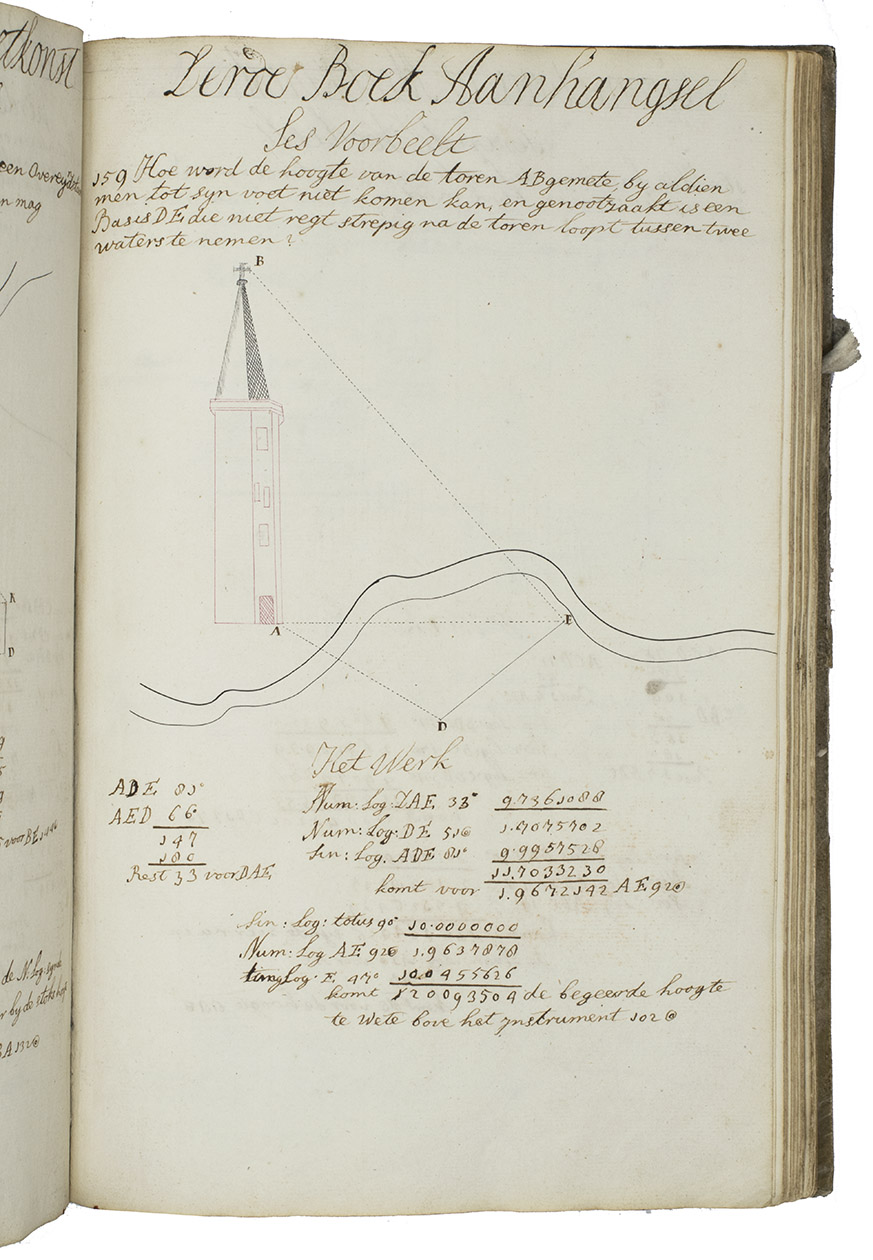 etkonst
een
n mag
Eerde Boek Aanhangsel
Ses Voorbeelt
159 Hoe word de hoogte van de toren AB gemete, by aldien
men tot syn voet niet komen kan, en genootzaakt is een
Basis DE die niet regt strepig na de toren loopt tussen twee
waters te nemen?
B
A
E
D
K
D
Het Werk
ADE 81°
AED 66°
147
180
Rest 33 voor DAE
Num: Log: DAE 33° 9.7361088
Num: Log: DE 51⓪ 1.7075702
Sin: Log. ADE 81° 9.9957528
11.7033230
komt voor 1.9672142 AE 92⓪
Sin: Log: totus 90° 10.0000000
Num: Log AE 92⓪ 1.9637878
tang Log. E 47° 10.0455626
komt 12.0093504 de begeerde hoogte
te Wete bove het ynstrument 102⓪
voor BE
de N: Log:
BA 132⓪